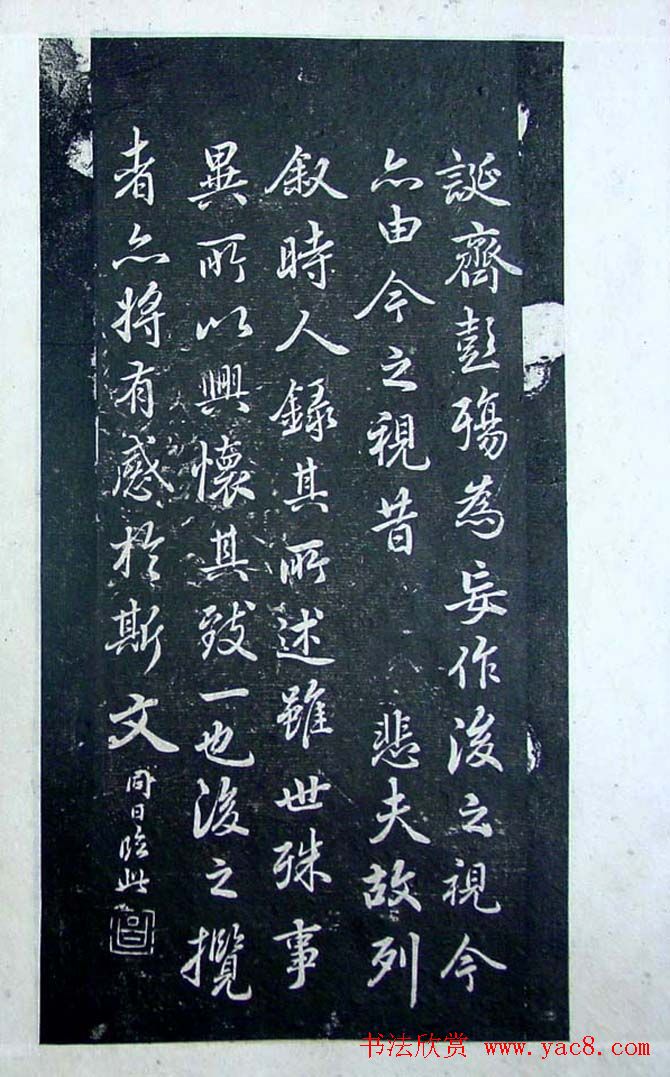 誕齊彭殤為妄作後之視今
亦由今之視昔 悲夫故列
敘時人錄其所述雖世殊事
異所以興懷其致一也後之攬
者亦將有感於斯文
同日臨此
书法欣赏 www.yac8.com